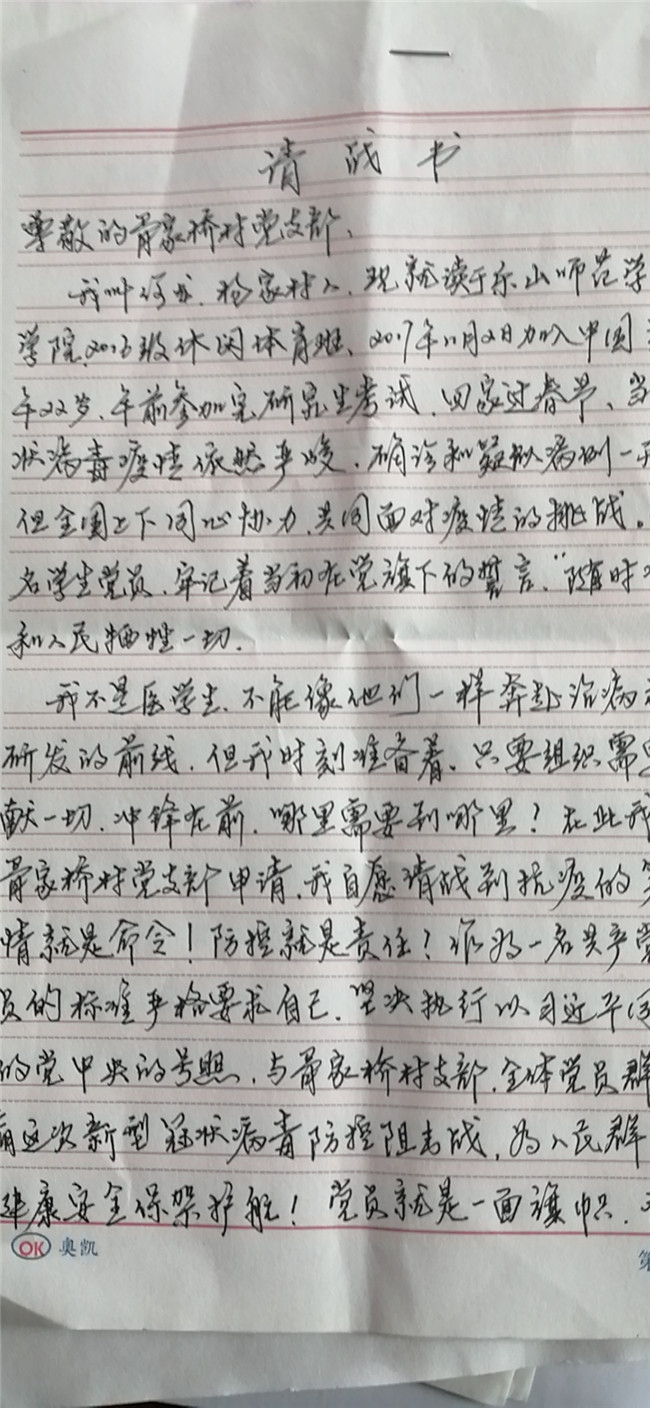 请战书
尊敬的骨家桥村党支部、
我叫何龙、杨家村人、现就读于乐山师范学
学院、2016级休闲体育班、2017年11月2日加入中国
年22岁、年前参加完研究生考试、回家过春节、当
状病毒疫情依然严峻、确诊和疑似病例一
但全国上下同心协力、共同面对疫情的挑战。
名学生党员、牢记着当初在党旗下的誓言、“随时
和人民牺牲一切.
我不是医学生、不能像他们一样奔赴治病
研发的前线、但我时刻准备着、只要组织需要
献一切、冲锋在前、哪里需要到哪里？在此我
骨家桥村党支部申请、我自愿请战到抗疫的
情就是命令！防控就是责任？作为一名共产党
员的标准严格要求自己、坚决执行以习近平同
的党中央的号照、与骨家桥村支部、全体党员群
这次新型冠状病毒防控阻击战，为人民群
建康安全保架护航！党员就是一面旗帜、
OK 奥凯
第